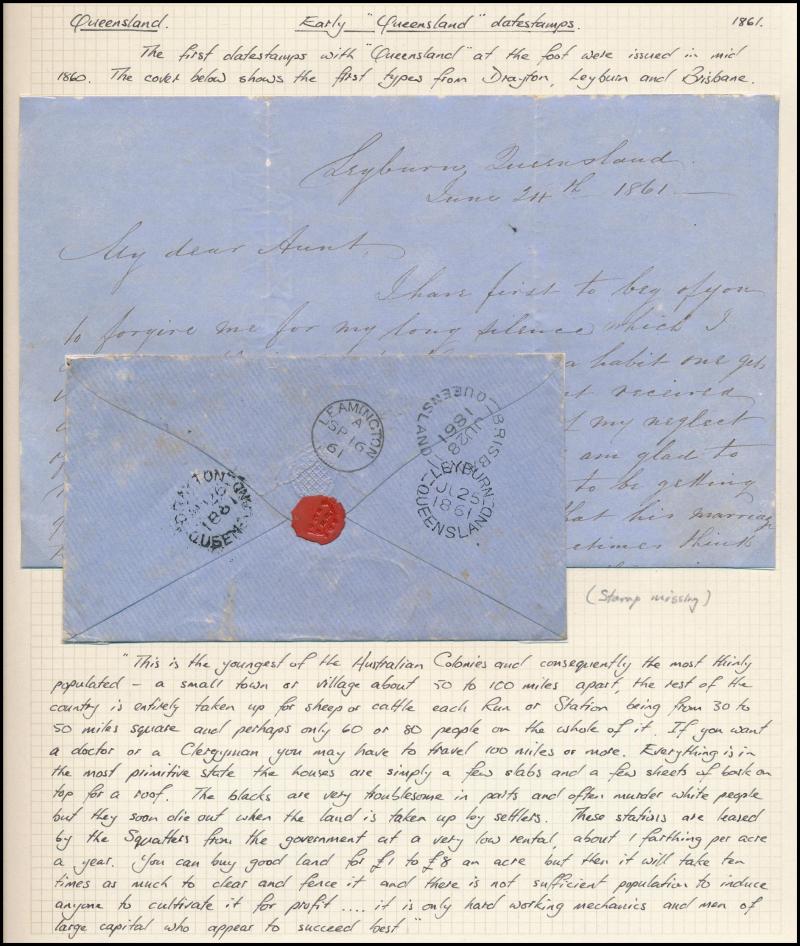 Queensland. Early "Queensland" datestamps. 1861.
The first datestamps with "Queensland" at the foot were issued in mid
1860. The cover below shows the first types from Drayton, Leyburn and Brisbane.
Leyburn, Queensland.
June 24th 1861
My dear Aunt,
I have first to beg of you
to forgive me for my long silence which I
a habit one gets
received
my neglect
am glad to
to be getting
that his marriage
think
LEAMINGTON
A
SP 16
61
BRISB
JU 28
1861
QUEENSLAND
DRAYTON
1861
QUEENSLAND
LEYBURN
JU 25
1861
QUEENSLAND
(Stamp missing)
"This is the youngest of the Australian Colonies and consequently the most thinly
populated – a small town or village about 50 to 100 miles apart, the rest of the
country is entirely taken up for sheep or cattle each Run or Station being from 30 to
50 miles square and perhaps only 60 or 80 people on the whole of it. If you want
a doctor or a Clergyman you may have to travel 100 miles or more. Everything is in
the most primitive state the houses are simply a few slabs and a few sheets of bark on
top for a roof. The blacks are very troublesome in parts and often murder white people
but they soon die out when the land is taken up by settlers. These stations are leased
by the Squatters from the government at a very low rental, about 1 farthing per acre
a year. You can buy good land for £1 to £8 an acre but then it will take ten
times as much to clear and fence it and there is not sufficient population to induce
anyone to cultivate it for profit .... it is only hard working mechanics and men of
large capital who appear to succeed best"